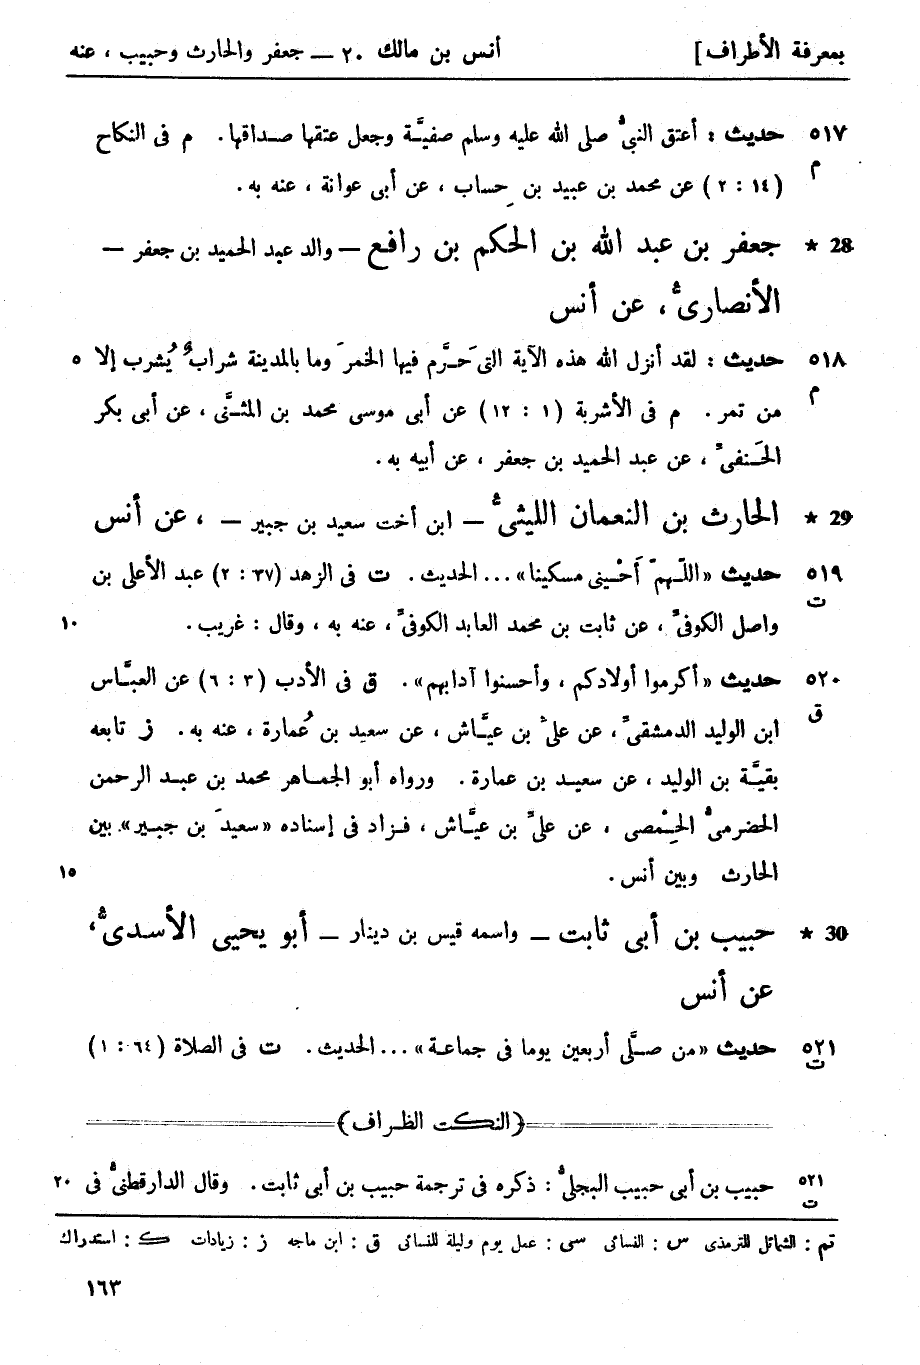 بمعرفة الأطراف] أنس بن مالك ٢٠ — جعفر والحارث وحبيب ، عنه
٥١٧ حديث : أعتق النبىُّ صلى الله عليه وسلم صفيَّة وجعل عتقها صداقها. م فى النكاح
م (١٤ : ٢) عن محمد بن عبيد بن حساب ، عن أبى عوانة ، عنه به.
28 ★ جعفر بن عبد الله بن الحكم بن رافع — والد عبد الحميد بن جعفر —
الأنصارىُّ ، عن أنس
٥١٨ حديث : لقد أنزل الله هذه الآية التى حرَّم فيها الخمرَ وما بالمدينة شرابٌ يُشرب إلا ٥
م من تمر. م فى الأشربة (١ : ١٢) عن أبى موسى محمد بن المثنَّى ، عن أبى بكر
الحَنفىِّ ، عن عبد الحميد بن جعفر ، عن أبيه به.
29 ★ الحارث بن النعمان الليثىُّ — ابن أخت سعيد بن جبير — ، عن أنس
٥١٩ حديث «اللّٰهمّ أَحْينى مسكينا»... الحديث. ت فى الزهد (٣٧ : ٢) عبد الأعلى بن
ت واصل الكوفىِّ ، عن ثابت بن محمد العابد الكوفىِّ ، عنه به ، وقال : غريب. ١٠
٥٢٠ حديث «أكرموا أولادكم ، وأحسنوا آدابهم». ق فى الأدب (٣ : ٦) عن العبَّاس
ق ابن الوليد الدمشقىِّ ، عن علىِّ بن عيَّاش ، عن سعيد بن عُمارة ، عنه به. ز تابعه
بقيَّة بن الوليد ، عن سعيد بن عمارة. ورواه أبو الجماهر محمد بن عبد الرحمن
الحضرمىُّ الحِمْصى ، عن علىِّ بن عيَّاش ، فزاد فى إسناده «سعيدَ بن جبير» بين
الحارث وبين أنس. ١٥
30 ★ حبيب بن أبى ثابت — واسمه قيس بن دينار — أبو يحيى الأسدىُّ ،
عن أنس
٥٢١ حديث «من صلَّى أربعين يوما فى جماعة»... الحديث. ت فى الصلاة (٦٤ : ١)
ت
(النكت الظراف)
٥٢١ حبيب بن أبى حبيب البجلىُّ : ذكره فى ترجمة حبيب بن أبى ثابت. وقال الدارقطنىُّ فى ٢٠
ت
تم : الشمائل للترمذى س : النسائى سى : عمل يوم وليلة للنسائى ق : ابن ماجه ز : زيادات ك : استدراك
١٦٣